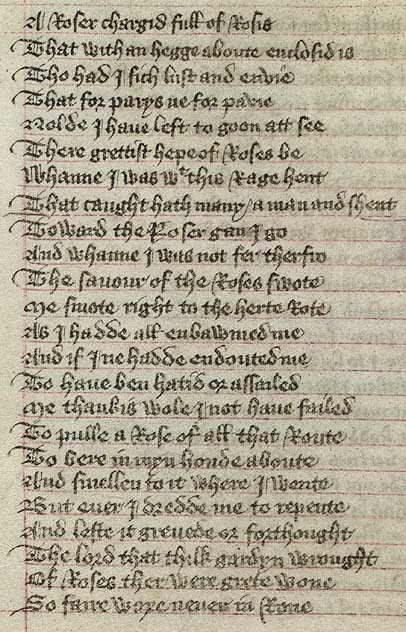 A Roser chargid full of Rosis
That with an hegge aboute enclosid is
Tho had I sich lust and envie
That for parys ne for pavie
Nolde I have left to goon att see
There grettist hepe of Roses be
Whanne I was wt this Rage hent
That caught hath many / a man and shent
Toward the Roser gan I go
And whanne I was not fer therfro
The savour of the Roses swote
Me smote right to the herte Rote
As I hadde all enbawmed me
And if I ne hadde endouted me
To have ben hatid or assailed
Me thankis wole I not have failed
To pulle a Rose of all that Route
To bere in myn honde aboute
And smellen to it where I wente
But ever I dredde me to repente
And leste it grevede or forthought
The lord that thilk gardyn wrought
Of Roses ther were grete wone
So faire waxe never in Rone